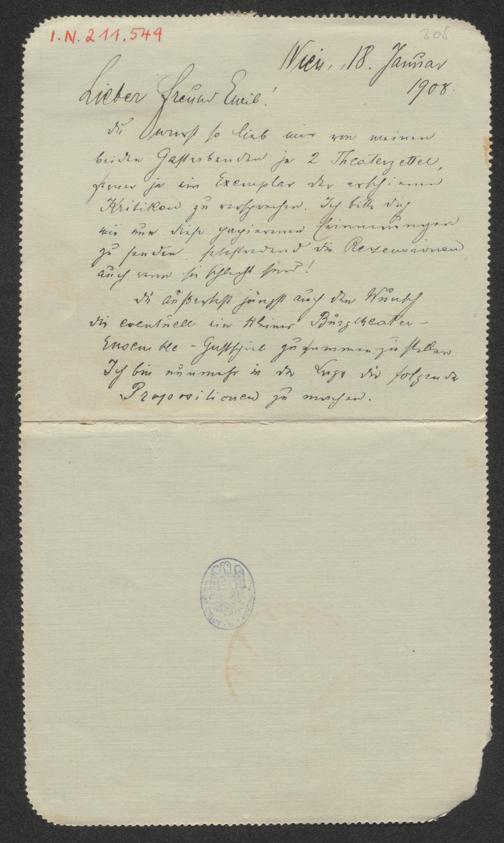 I.N. 211.549
305
Wien, 18. Januar
1908.
Lieber Freund Emil!
Du warst so lieb mir von meinen
beiden Gastabenden je 2 Theaterzettel,
ferner je ein Exemplar der erschienen
Kritiken zu versprechen. Ich bitte Dich
mir nur diese papierenen Erinnerungen
zu senden, selbstredend die Rezensionen
auch wenn sie schlecht sind!
Du äußertest jüngst auch den Wunsch
dir eventuell ein kleines Burgtheater-
Ensemble-Gastspiel zusammenzustellen
Ich bin nunmehr in der Lage dir folgende
Propositionen zu machen.